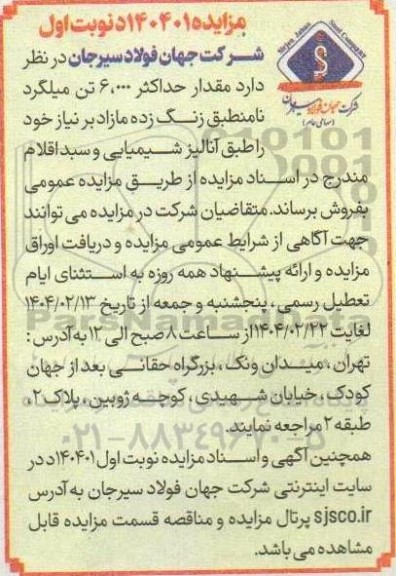 مزایده ۱۴۰۴۰۱د نوبت اول
Sirjan Jahan Steel Company
شرکت جهان فولاد سیرجان
(سهامی عام)
شرکت جهان فولاد سیرجان در نظر
دارد مقدار حداکثر ۶,۰۰۰ تن میلگرد
نامنطبق زنگ زده مازاد بر نیاز خود
را طبق آنالیز شیمیایی و سبد اقلام
مندرج در اسناد مزایده از طریق مزایده عمومی
بفروش برساند. متقاضیان شرکت در مزایده می توانند
جهت آگاهی از شرایط عمومی مزایده و دریافت اوراق
مزایده و ارائه پیشنهاد همه روزه به استثنای ایام
تعطیل رسمی، پنجشنبه و جمعه از تاریخ ۱۴۰۴/۰۲/۱۳
لغایت ۱۴۰۴/۰۲/۲۲ از ساعت ۸ صبح الی ۱۲ به آدرس :
تهران ، میدان ونک ، بزرگراه حقانی ، بعد از جهان
کودک ، خیابان شهیدی ، کوچه ژوبین ، پلاک ۲ ،
طبقه ۲ مراجعه نمایند.
۰۲۱-۸۸۳۴۹۶۷۰-۵
همچنین آگهی و اسناد مزایده نوبت اول ۱۴۰۴۰۱د در
سایت اینترنتی شرکت جهان فولاد سیرجان به آدرس
sjsco.ir پرتال مزایده و مناقصه قسمت مزایده قابل
مشاهده می باشد.